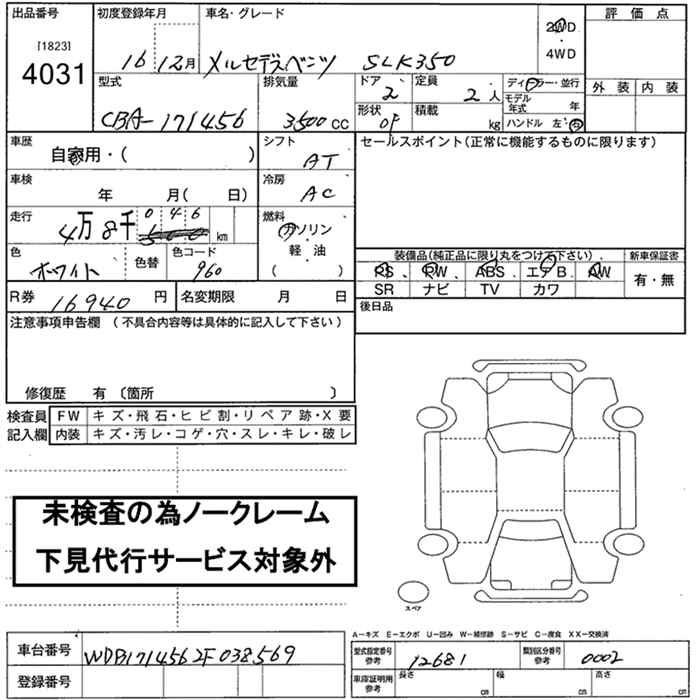 出品番号
[1823]
4031
初度登録年月
16 12月
車名・グレード
メルセデスベンツ SLK350
2WD
・
4WD
評価点
外装 内装
型式
CBA-171456
排気量
3500 CC
ドア
2
定員
2 人
形状
OP
積載
kg
ディーラー・並行
モデル年式 年
ハンドル 左・右
車歴
自家用・( )
シフト
AT
車検
年 月( 日)
冷房
AC
走行
4万 8千 0 4 6 km
燃料
ガソリン
軽・油
( )
色
ホワイト
色替
色コード
960
R券 16940 円
名変期限 月 日
セールスポイント(正常に機能するものに限ります)
装備品(純正品に限り丸をつけて下さい)、
新車保証書
PS、PW、ABS、エアB、AW
SR ナビ TV カワ
有・無
後日品
注意事項申告欄 (不具合内容等は具体的に記入して下さい)
修復歴 有 〔箇所 〕
検査員
記入欄
FW キズ・飛石・ヒビ割・リペア跡・X要
内装 キズ・汚レ・コゲ・穴・スレ・キレ・破レ
未検査の為ノークレーム
下見代行サービス対象外
スペア
A-キズ E-エクボ U-凹み W-補修跡 S-サビ C-腐食 XX-交換済
車台番号 WDB1714562F038569
登録番号
型式指定番号
参考
12681
類別区分番号
参考
0002
車庫証明用
参考
長さ cm 幅 cm 高さ cm